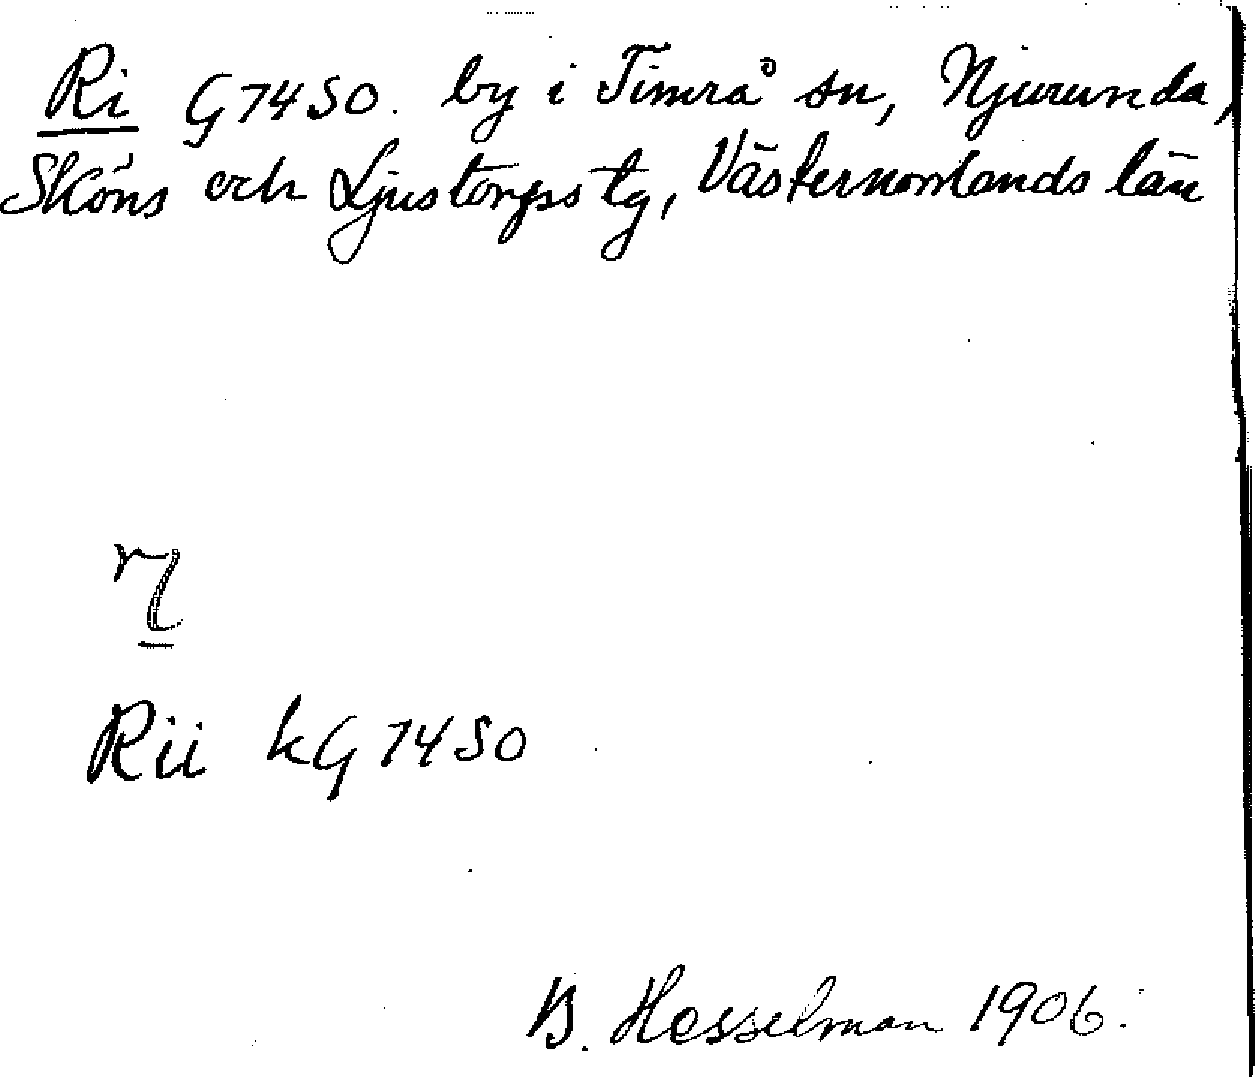 Ri G 74 SO. by i Timrå sn, Njurunda,
Sköns och Ljustorps tg, Västernorrlands län
Rii kG 74 SO
B. Hesselman 1906.